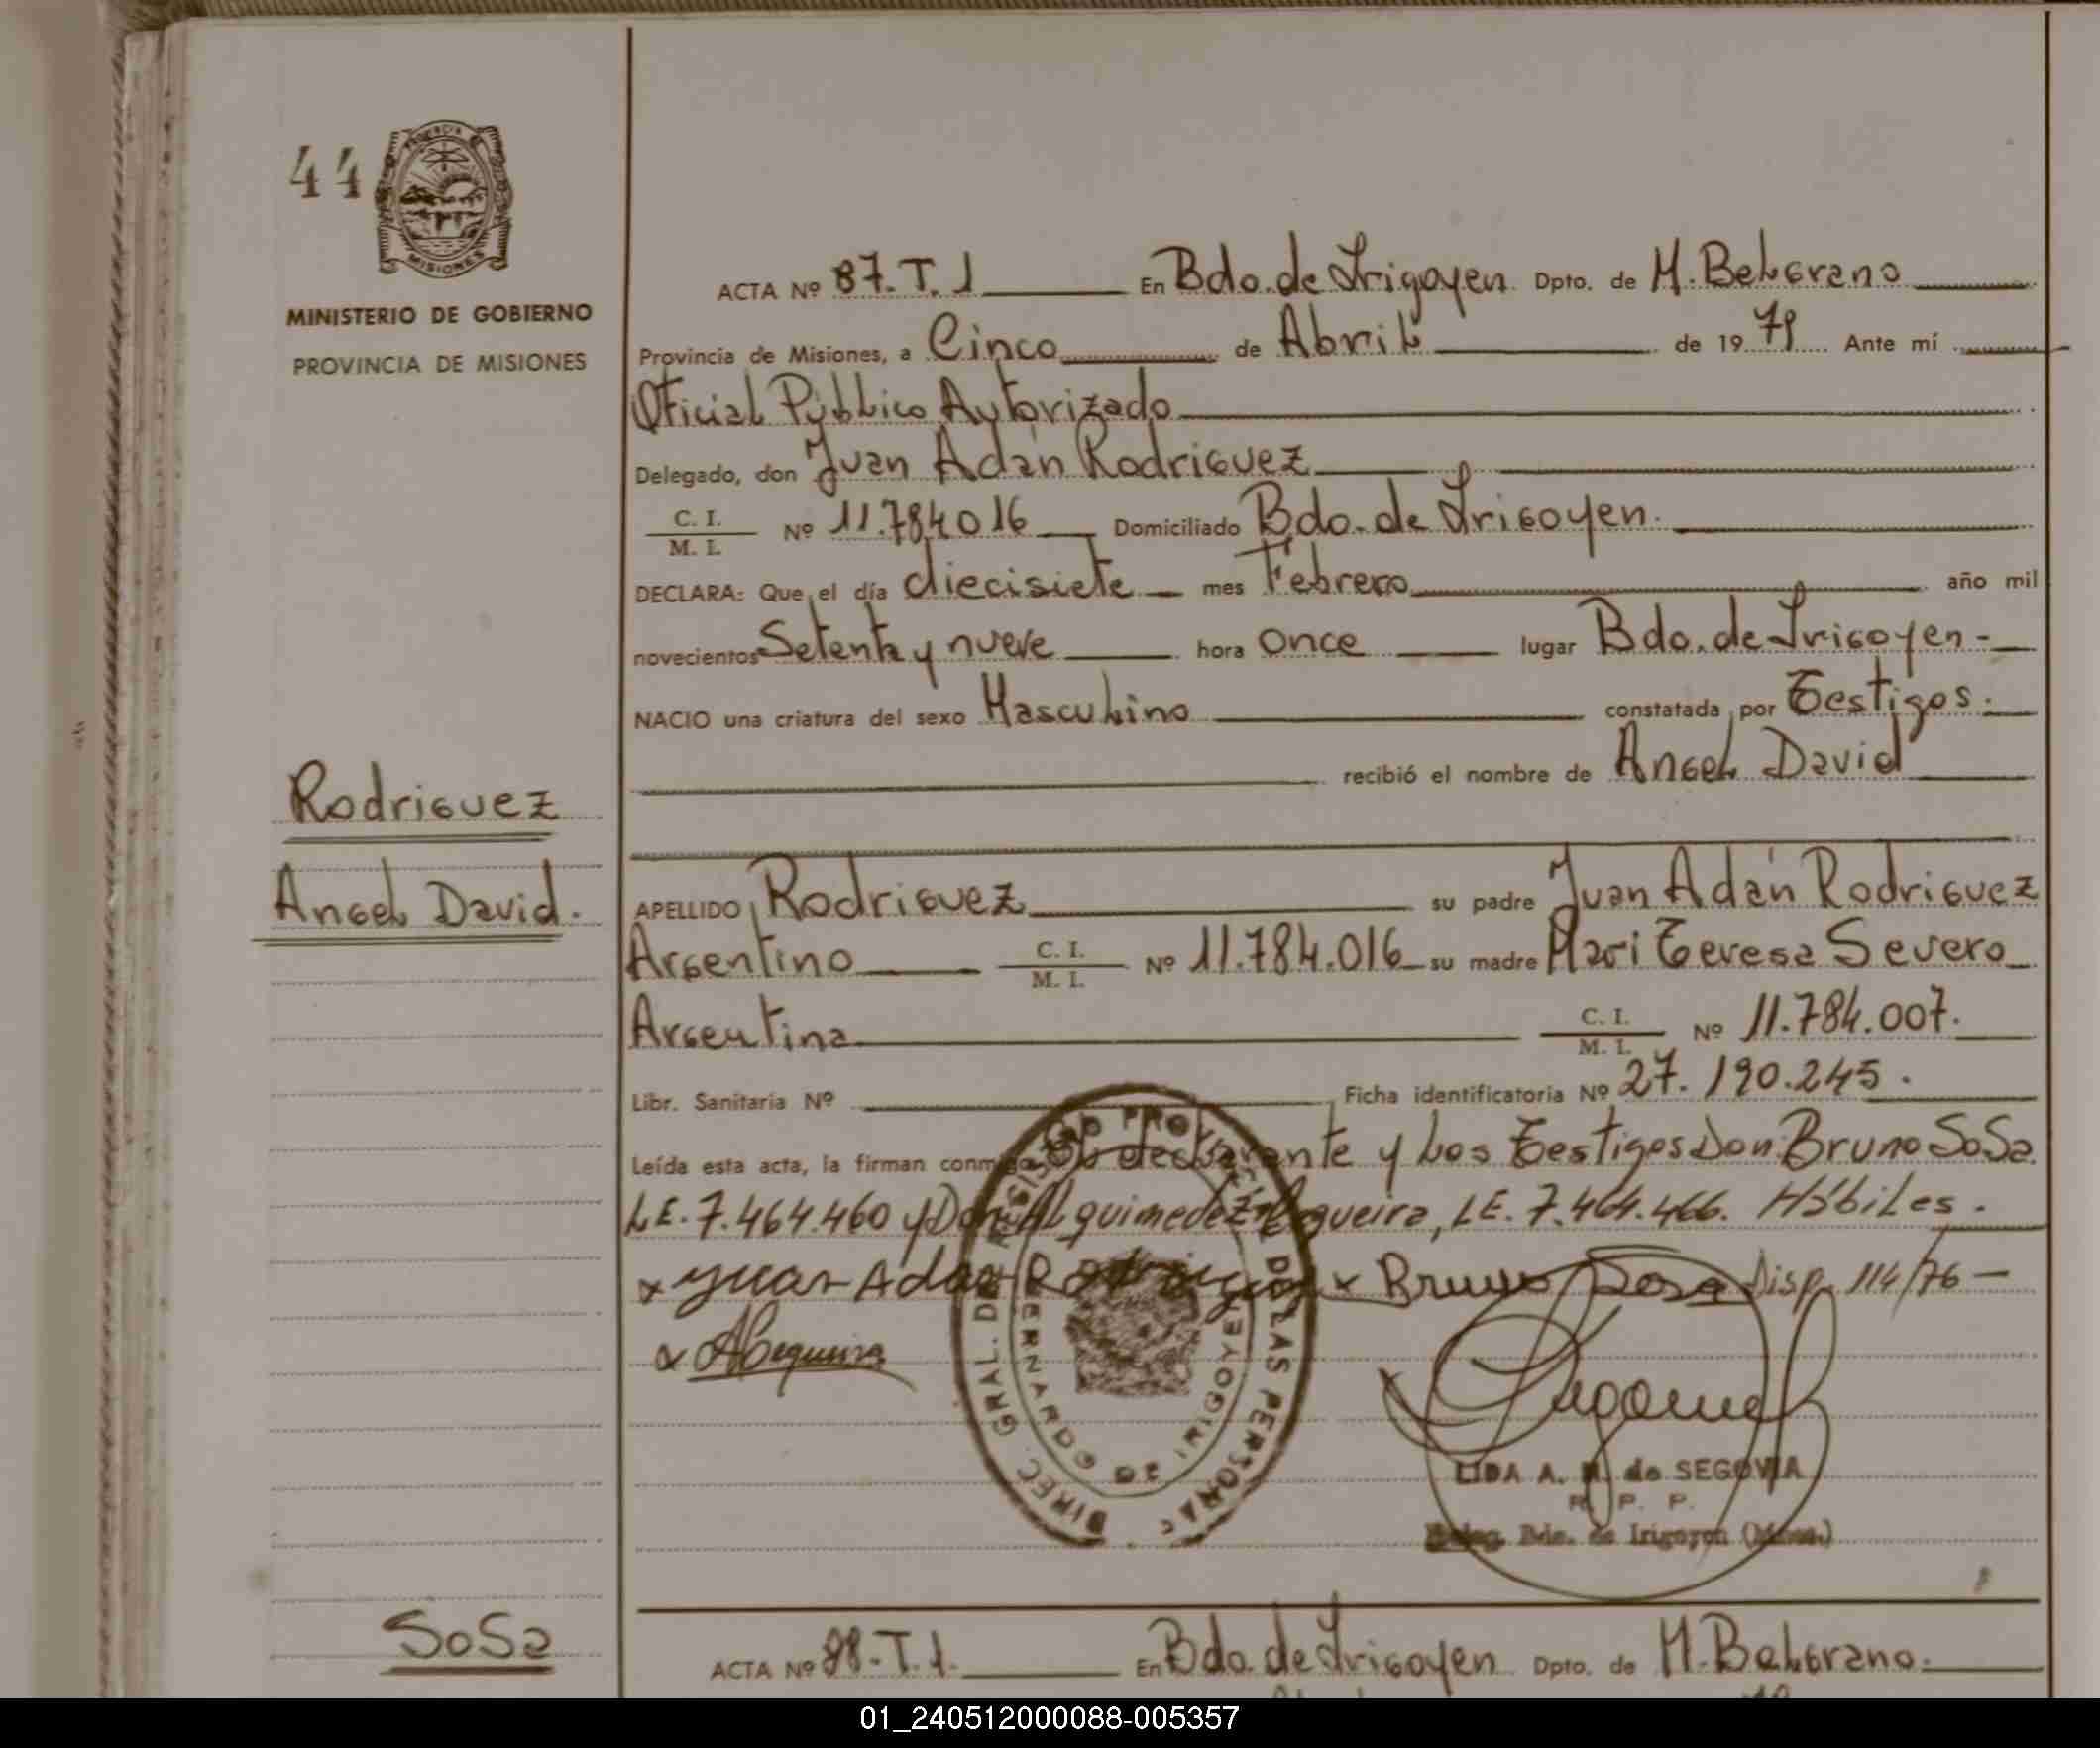 44
MISIONES
MINISTERIO DE GOBIERNO
PROVINCIA DE MISIONES
ACTA Nº 87.T.1 En Bdo. de Irigoyen Dpto. de M. Belgrano
Provincia de Misiones, a Cinco de Abril de 1979 Ante mí
Oficial Público Autorizado
Delegado, don Juan Adán Rodriguez
C. I. / M. I. Nº 11.784016 Domiciliado Bdo. de Irigoyen.
DECLARA: Que el día diecisiete mes Febrero año mil
novecientos Setenta y nueve hora Once lugar Bdo. de Irigoyen-
NACIO una criatura del sexo Masculino constatada por Testigos.
recibió el nombre de Angel David
Rodriguez
Angel David.
APELLIDO Rodriguez su padre Juan Adán Rodriguez
Argentino C. I. / M. I. Nº 11.784.016 su madre Mari Teresa Severo
Argentina C. I. / M. I. Nº 11.784.007.
Libr. Sanitaria Nº Ficha identificatoria Nº 27.190.245.
Leída esta acta, la firman conmigo El declarante y los Testigos Don Bruno Sosa
LE. 7.464.460 y Don Alquimedez Cegueira, LE. 7.464.466. Hábiles.
x Juan Adan Rodriguez x Bruno Sosa Disp. 114/76 -
DIREC. GRAL. DE REGISTRO PROVINCIAL DE LAS PERSONAS
BERNARDO DE IRIGOYEN
LIDA A. M. de SEGOVIA
R. P. P.
Deleg. Bdo. de Irigoyen (Mnes.)
Sosa
ACTA Nº 88-T.1. En Bdo. de Irigoyen Dpto. de M. Belgrano.
01_240512000088-005357